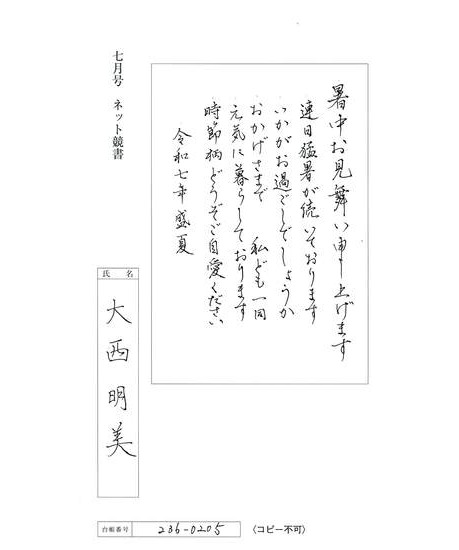 暑中お見舞い申し上げます
連日猛暑が続いております
いかがお過ごしでしょうか
おかげさまで 私ども一同
元気に暮らしております
時節柄どうぞご自愛ください
令和七年盛夏
七月号 ネット競書
氏名
大西明美
台帳番号 236-0205 〈コピー不可〉